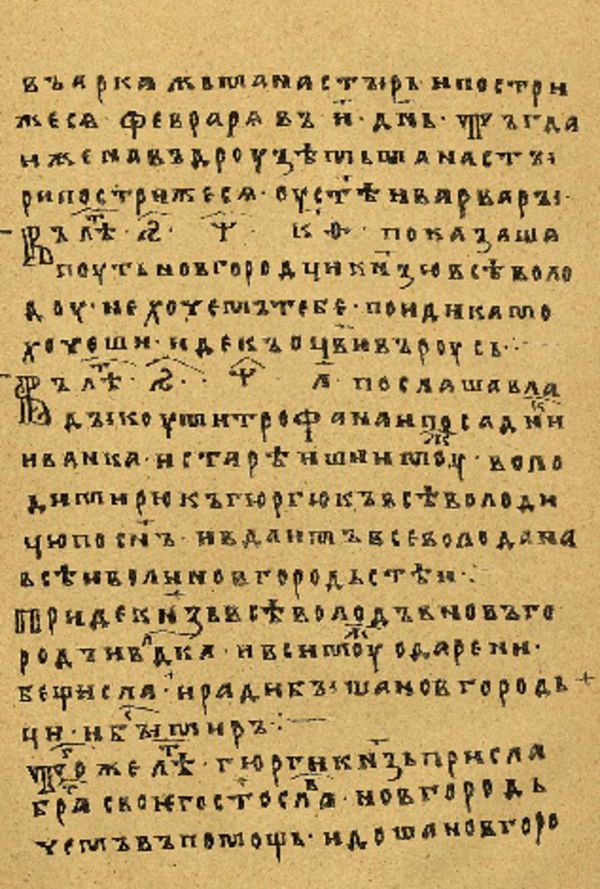 въ аркажь манастырь и постри
жеся февраря въ н҃ днь тъгда
и жена въ дроузѣмь манасты
ри пострижеся оу стѣи варвары
въ лѣ ѕ҃ ѱ҃ к҃ѳ показаша
поуть новгородци кнзю всѣволо
доу не хоцемъ тебе поиди камо
хоцеши иде къ оцви въ роусь
въ лѣ ѕ҃ ѱ҃ л҃ послаша вла
дыкоу митрофана и посадни
иванка и старѣишии моу воло
димирю къ гюргю къ всѣволоди
цю по снъ и вда имъ всеволода на
всѣи воли новгородьстѣи
приде кнзь всѣволодъ в новъго
родъ и влдка и вси моу одарени
бещисла и ради быша новгородь
ци и бы миръ
томже лѣ гюрги кнзь присла
бра своѥго стосла новгородь
цемъ въ помощь и доша новгоро